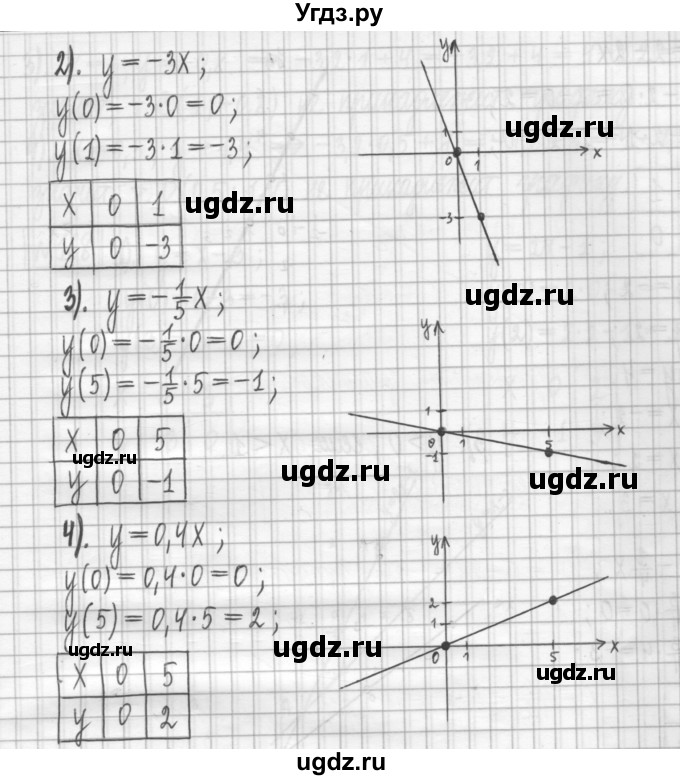 Угдз.ру
2). y = -3x ;
y(0) = -3·0 = 0 ;
y(1) = -3·1 = -3 ;
x 0 1
y 0 -3
y
1
0 1 x
-3
ugdz.ru
ugdz.ru
ugdz.ru
3). y = -1/5 x ;
y(0) = -1/5·0 = 0 ;
y(5) = -1/5·5 = -1 ;
x 0 5
y 0 -1
y
1
0 1 5 x
-1
ugdz.ru
ugdz.ru
ugdz.ru
4). y = 0,4x ;
y(0) = 0,4·0 = 0 ;
y(5) = 0,4·5 = 2 ;
x 0 5
y 0 2
y
2
1
0 1 5 x
ugdz.ru
ugdz.ru
ugdz.ru
ugdz.ru